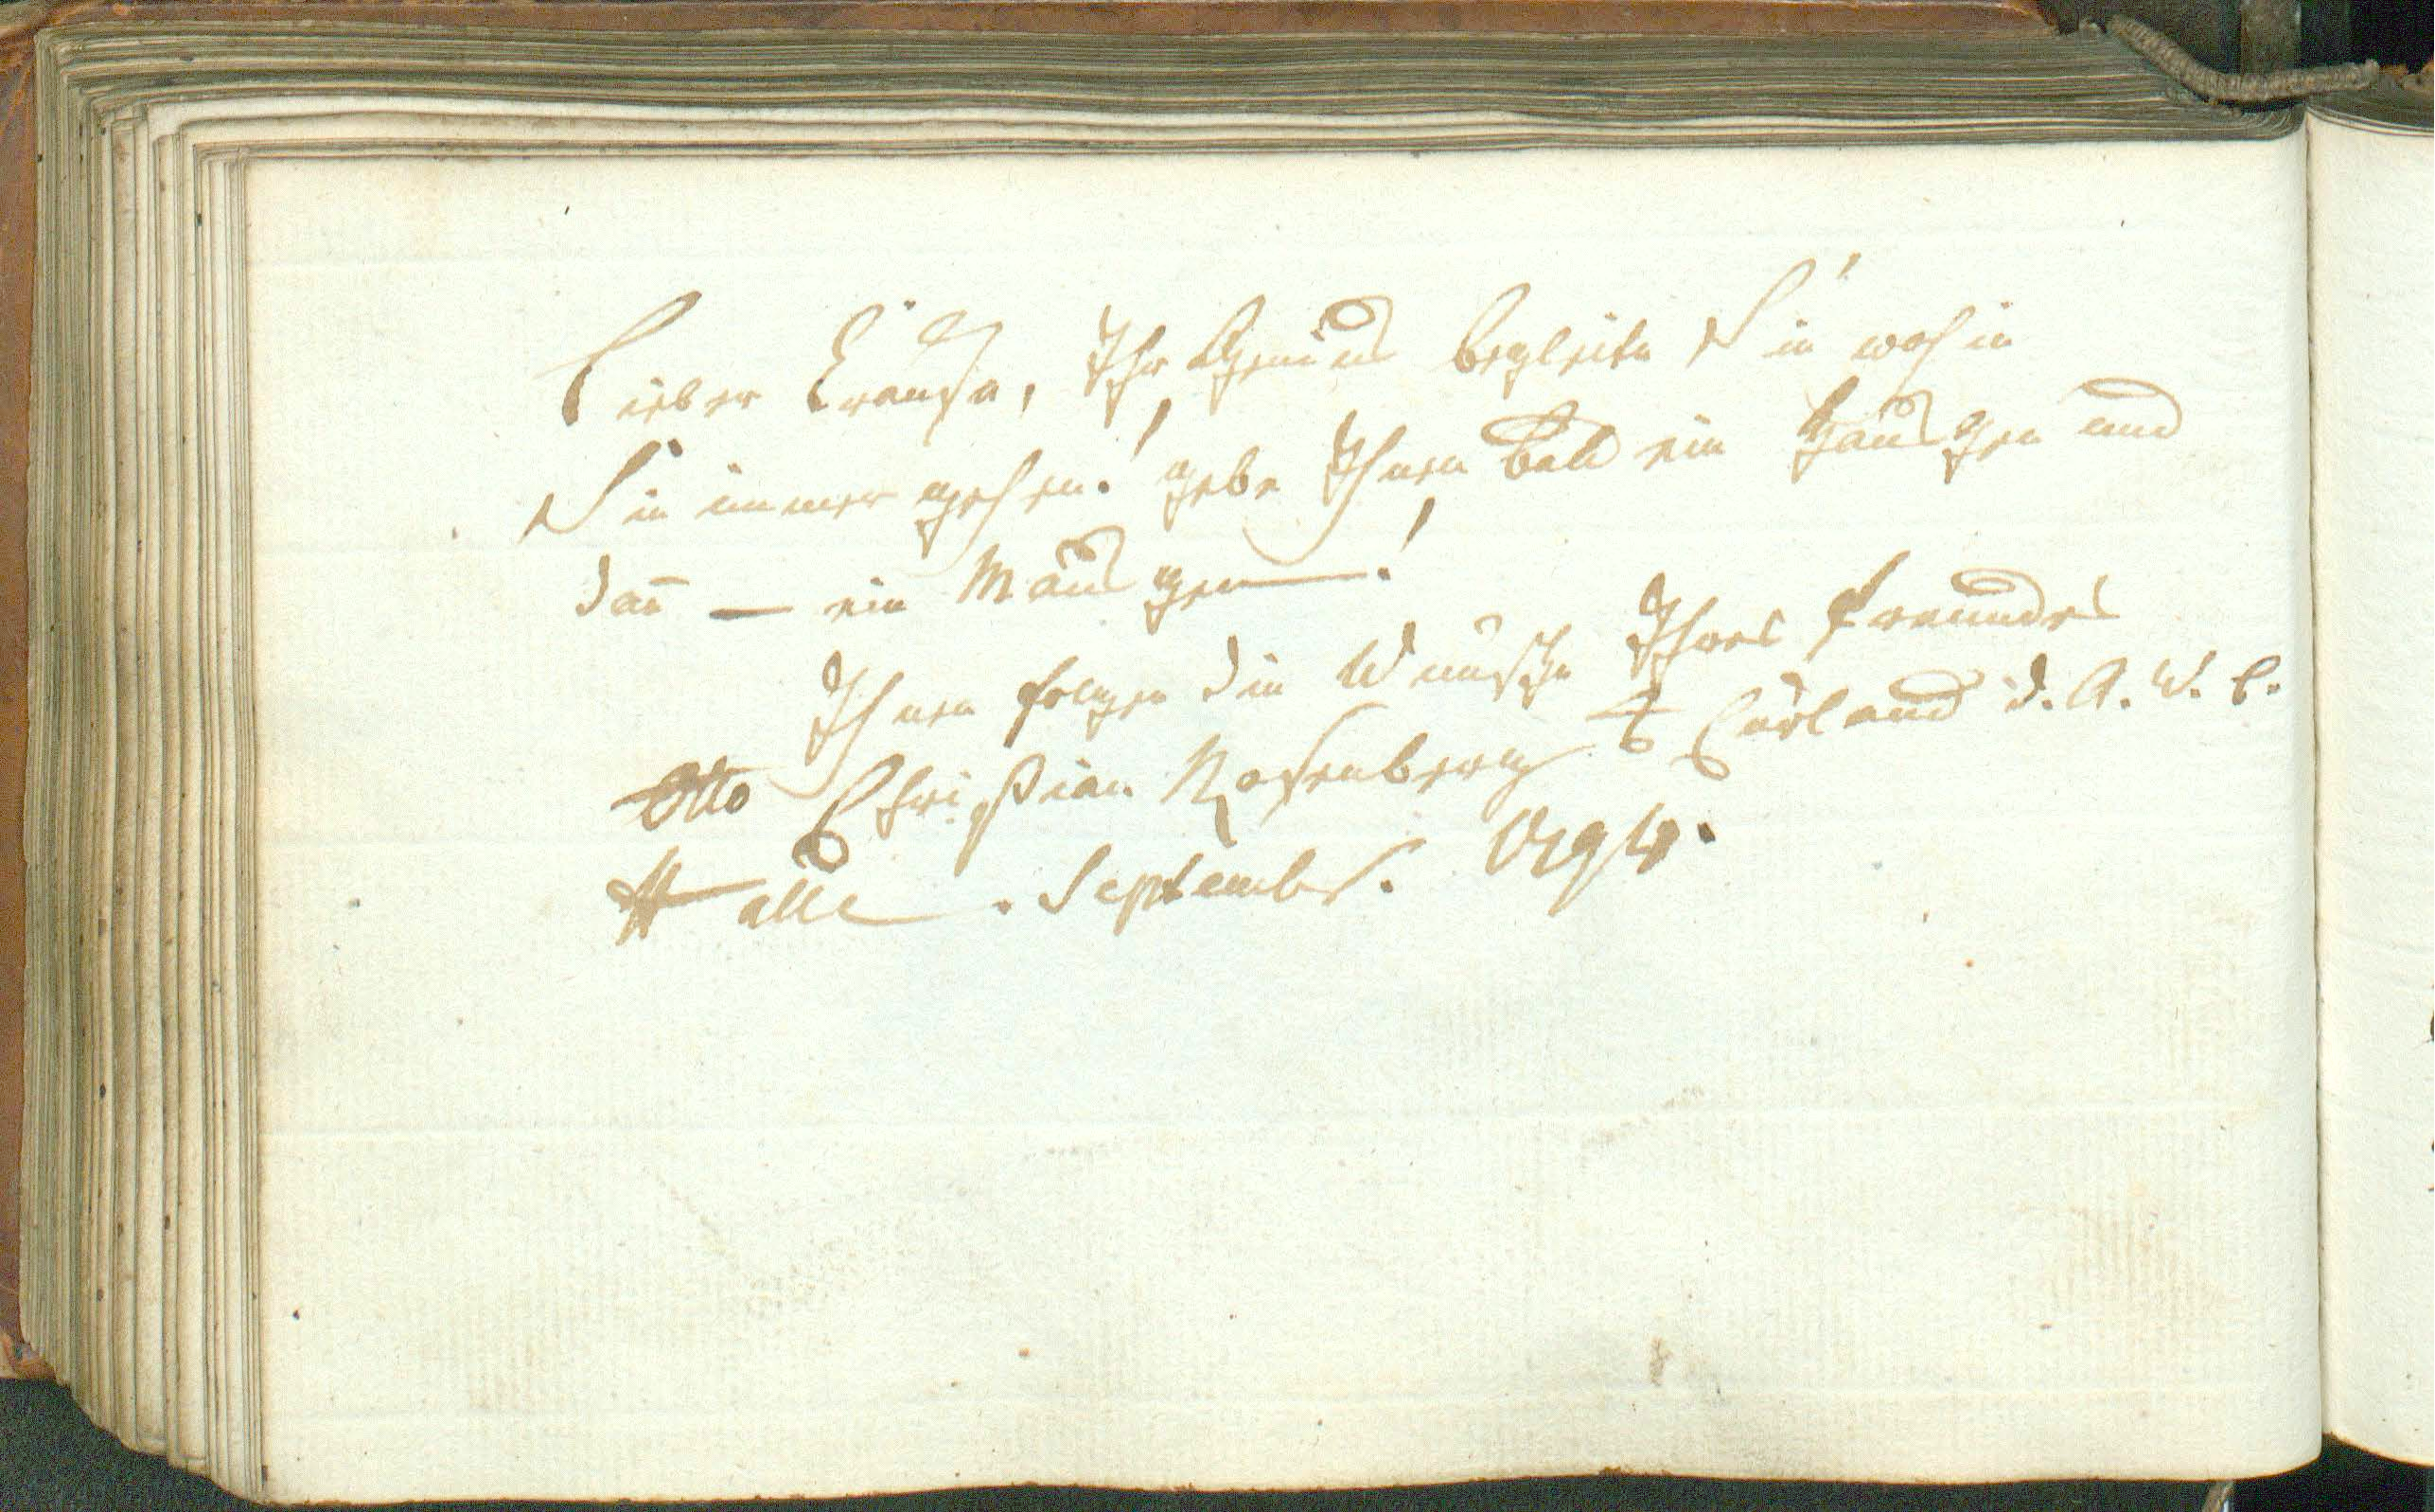 Lieber Krause, Ihr Genius begleite Sie wohin
Sie immer gehen! gebe Ihnen bald ein Häusgen und
dan̅ — ein Mäusgen!
Ihnen folgen die Wünsche Ihres Freundes
Otto Christian Rosenberg Curland d. A. W. B.
Halle. Septembr.